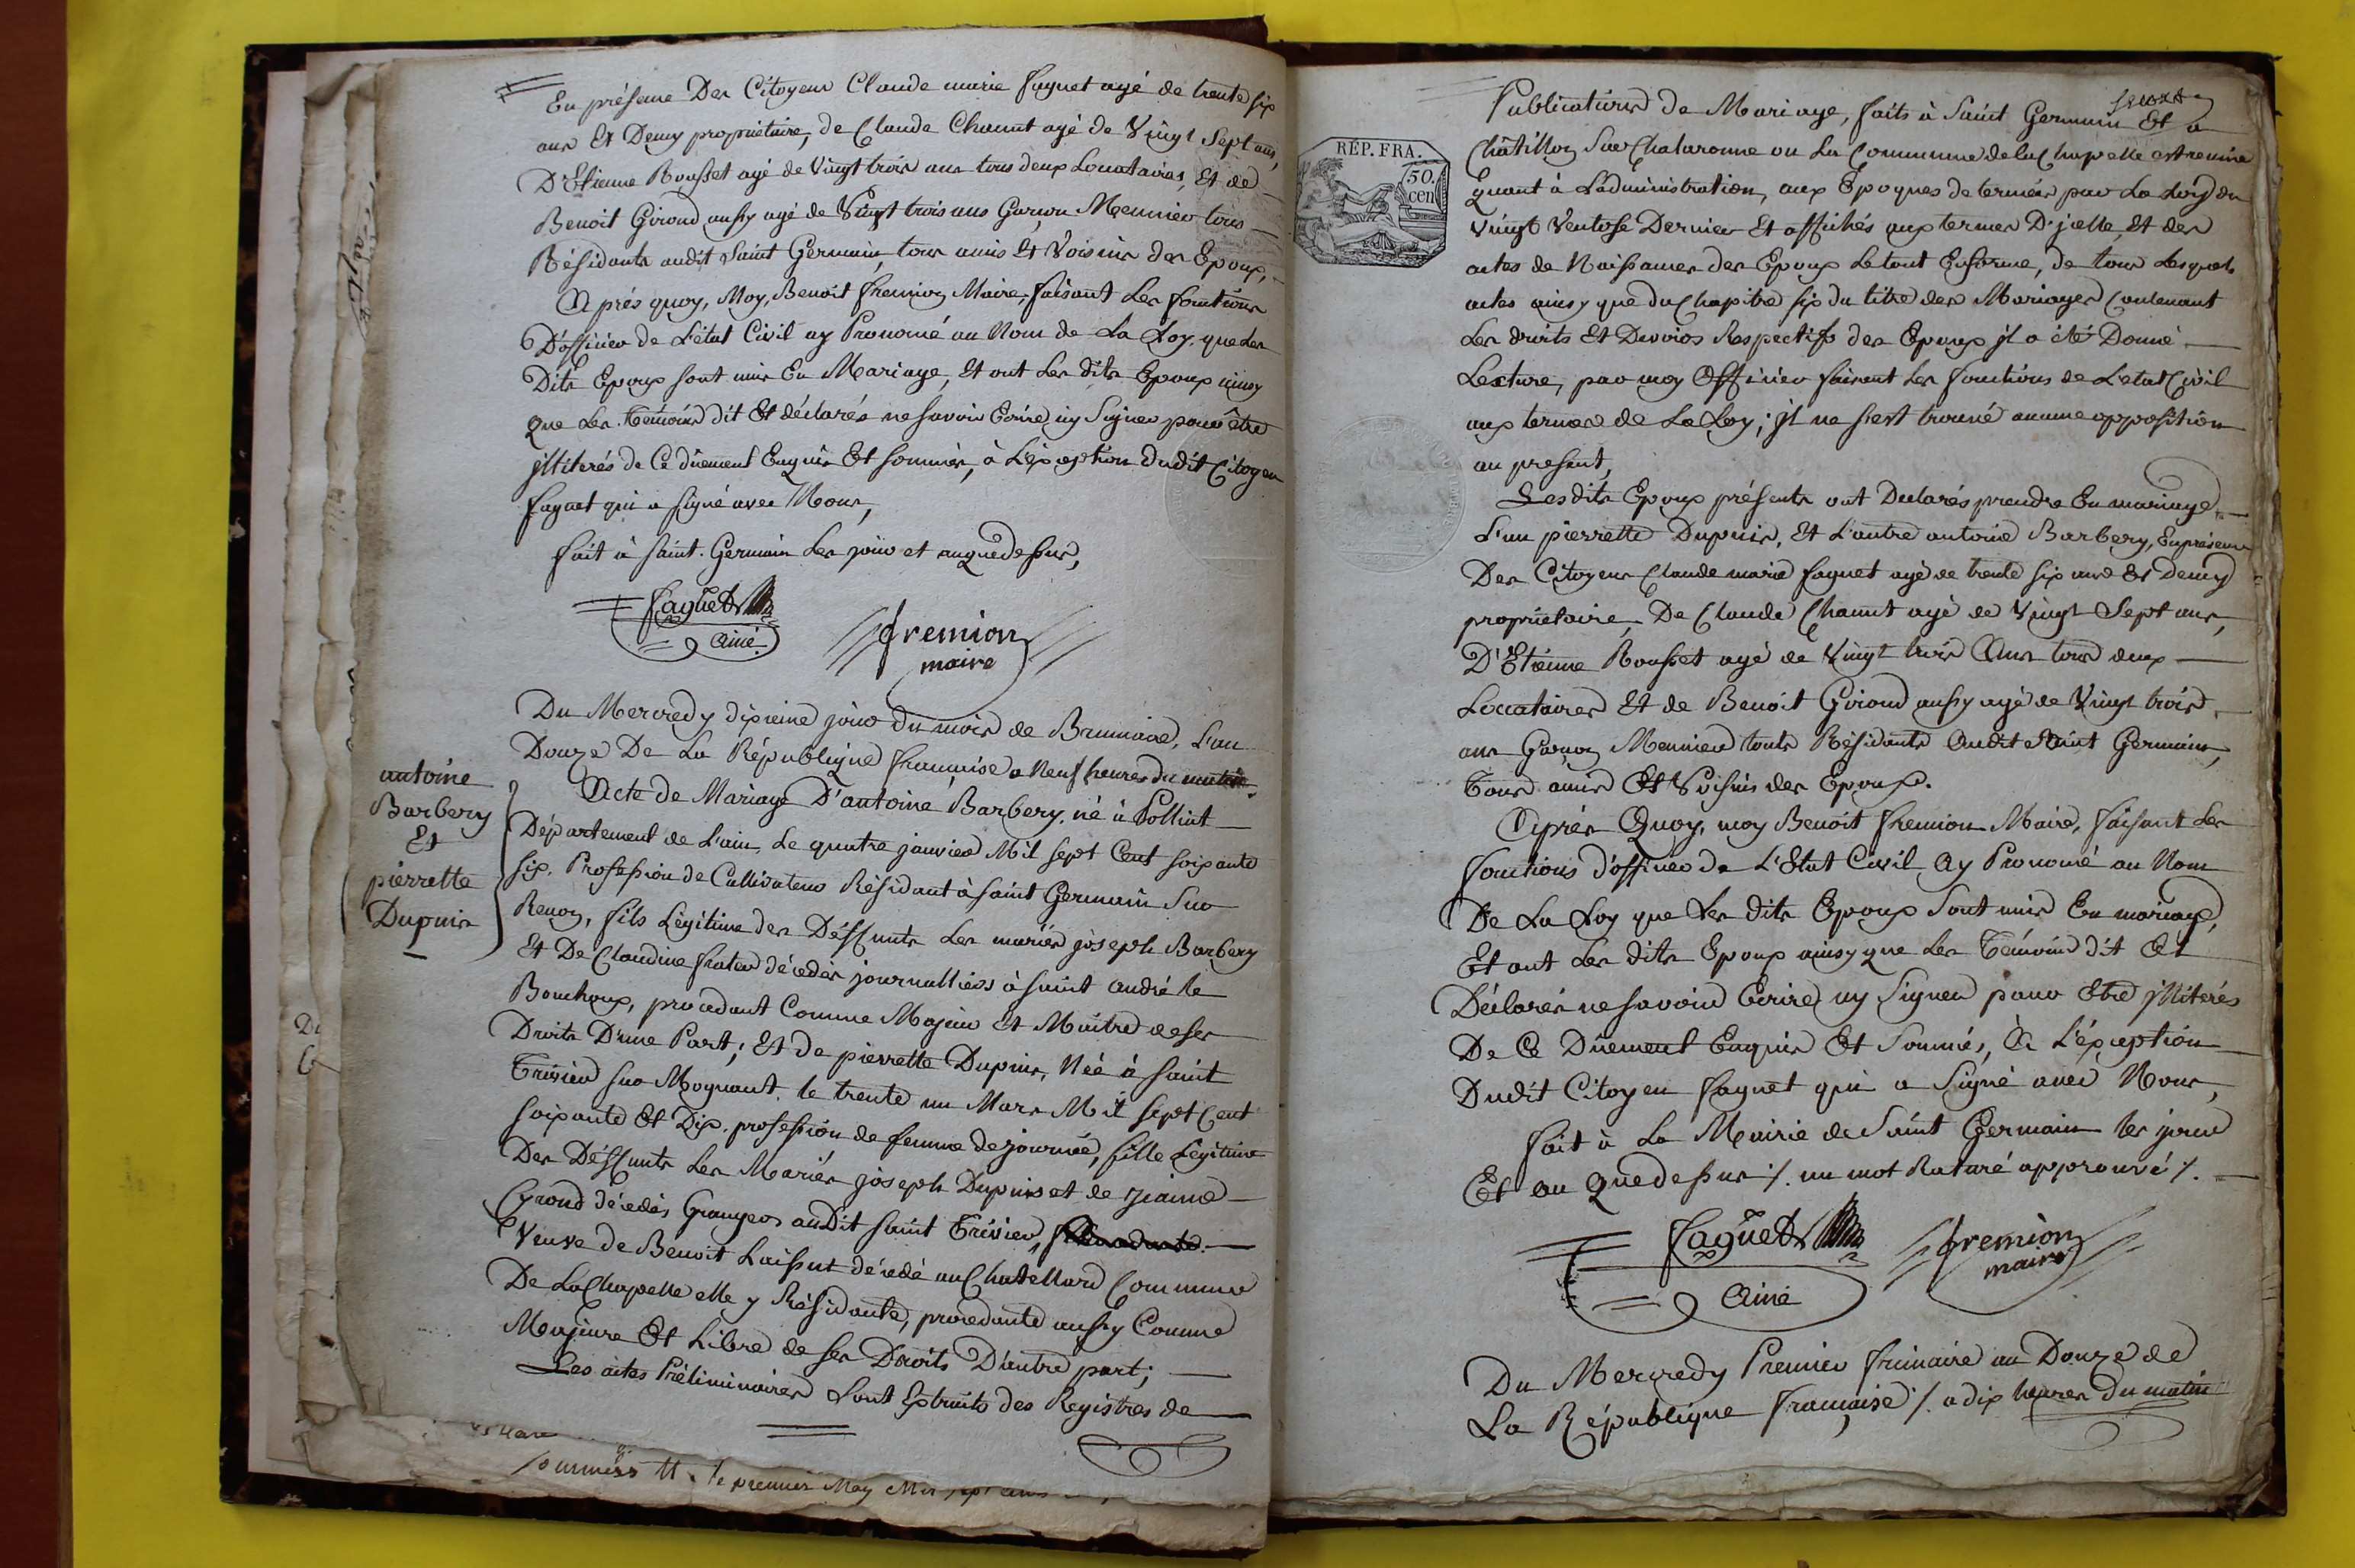 En présence Des Citoyens Claude marie faguet agé de trente six
ans Et Demy propriétaire, de Claude Chanut agé de Vingt Sept ans,
D'Etienne Rousset agé de Vingt trois ans tous deux Locataires, Et de
Benoit Giroud aussy agé de Vingt trois ans Garçon Meunier tous
Résidants audit Saint Germain, tous amis Et Voisins des Epoux,
Après quoy, Moy, Benoit fremion Maire, faisant Les fonctions
D'officier de L'état Civil ay Prononcé au Nom de La Loy. que Les
Dits Epoux sont unis En Mariage, Et ont Les dits Epoux ainsy
que Les Témoins dit Et déclarés ne savoir Ecrire ny Signer pour être
jllitérés de Ce dûement Enquis Et sommés, à L'exception dudit Citoyen
faguet qui a signé avec Nous,
fait à saint. Germain Les jour et an que dessus,
faguet
ainé
fremion
maire
Du Mercredy dixième jour du mois de Brumaire, L'an
Douze De La République française a Neuf heures du matin.
antoine
Barbery
Et
pierrette
Dupuis
Acte de Mariage D'antoine Barbery, né à Polliat
Département de L'ain, Le quatre janvier Mil sept Cent soixante
six. Profession de Cultivateur Résidant à saint Germain Sur
Renon, fils Légitime des Deffunts Les mariés joseph Barbery
Et De Claudine frater décédés journalliers à saint andré le
Bouchoux, procedant Comme Majeur Et Maître de ses
Droits D'une Part; Et de pierrette Dupuis, Née à saint
Trivier sur Moignant. le trente un Mars Mil sept Cent
soixante Et Dix. profession de femme de journée, fille Légitime
Des Deffunts Les Mariés joseph Dupuis et de
Giroud décédés Grangers audit saint Trivier,
Veuve de Benoit Laissut décédé au Chatellard Commune
De La Chapelle elle y Résidante, procedante aussy Comme
Majeure Et Libre de ses Droits D'autre part;
Les actes Préliminaires sont Extraits des Registres de
le premier May
Publications de Mariage, faits à Saint Germain Et a
Châtillon Sur Chalaronne ou La Commune de la Chapelle est reunie
Quant à L'administration, aux Epoques determinés par La Loy du
Vingt Ventose Dernier Et affichés aux termes D'jcelle, Et des
actes de Naissances des Epoux Le tout En forme, de tous Lesquels
actes ainsy que du Chapitre six du titre des Mariages Contenant
Les droits Et Devoirs Respectifs des Epoux jl a été Donné
Lecture, par moy Officier faisant Les fonctions de L'état Civil
aux termes de La Loy; jl ne s'est trouvé aucune opposition
au present,
Lesdits Epoux présents ont Declarés prendre En mariage,
L'un pierrette Dupuis, Et L'autre antoine Barbery, En présence
Des Citoyens Claude marie faguet agé de trente six ans Et Demy
propriétaire, De Claude Chanut agé de Vingt Sept ans,
D'Etienne Rousset agé de Vingt trois Ans tous deux
Locataires Et de Benoit Giroud aussy agé de Vingt trois
ans Garçon Meunier touts Résidants Audit Saint Germain,
Tous amis Et Voisins des Epoux.
Après Quoy, moy Benoit fremion Maire, faisant Les
fonctions d'officier de L'Etat Civil Ay Prononcé au Nom
De La Loy que Les dits Epoux Sont unis En mariage,
Et ont Les dits Epoux ainsy que Les Témoins dit Et
Déclarés ne savoir Ecrire ny Signer pour Etre jllitérés
De Ce Dûement Enquis Et Sommés, à L'exception
Dudit Citoyen faguet qui a Signé avec Nous,
fait à La Mairie de Saint Germain les jour
Et an Que dessus /. un mot Raturé approuvé /.
faguet
Ainé
fremion
maire
Du Mercredy Premier frimaire an Douze de
La République française /. a dix heures du matin
RÉP. FRA.
50.
cen